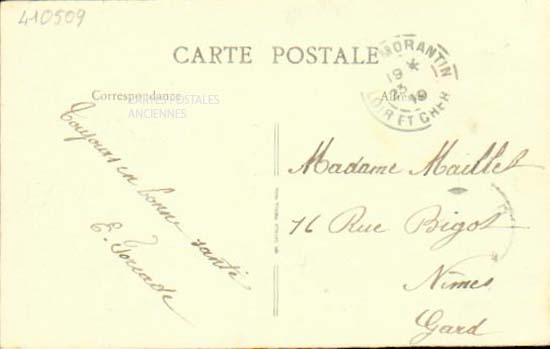 410509
CARTE POSTALE
Correspondance
CARTES POSTALES
ANCIENNES
Toujours en bonne santé
E. Forcade
Adresse
MORANTIN
19 *
23 19
LOIR ET CHER
Madame Maillet
16 Rue Bigot
Nîmes
Gard